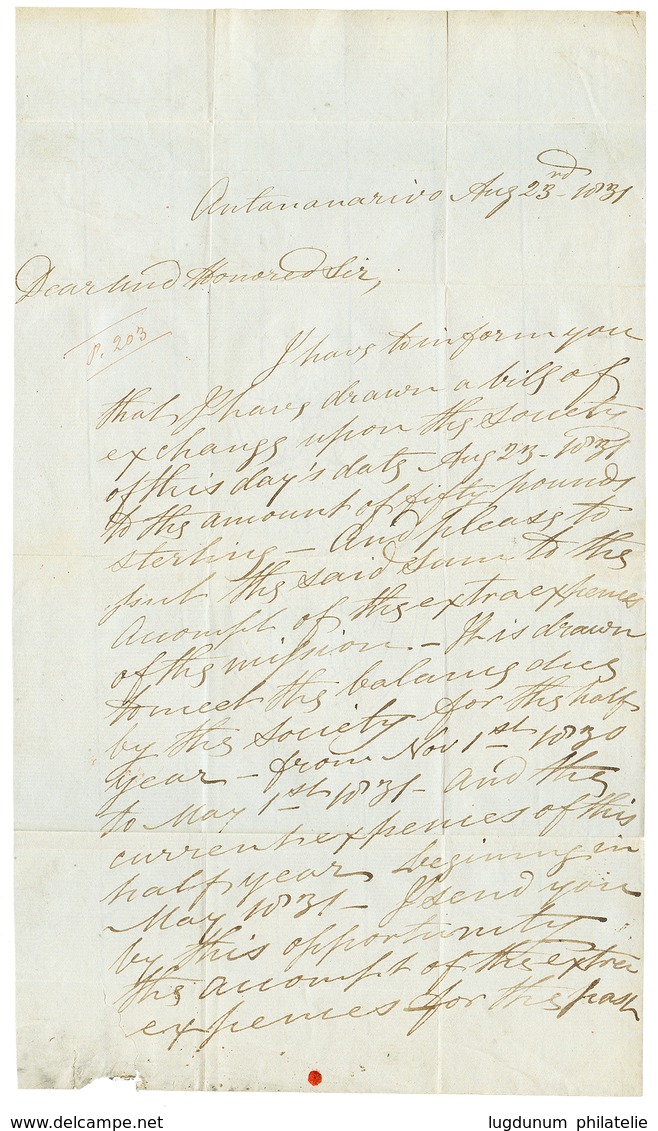 Antananarivo Aug 23rd - 1831
Dear And Honored Sir,
P. 203
I have to inform you
that I have drawn a bill of
exchange upon the Society
of this day's date Aug 23 - 1831
to the amount of fifty pounds
sterling - And please to
put the said sum to the
Accompt of the extra expences
of the mission - It is drawn
to meet the balance due
by the Society for the half
year - from Nov 1st 1830
to May 1st 1831 - and the
current expences of this
half year begining in
May 1831 - I send you
by this opportunity
the accompt of the extra
expences for the past
www.delcampe.net
lugdunum philatelie